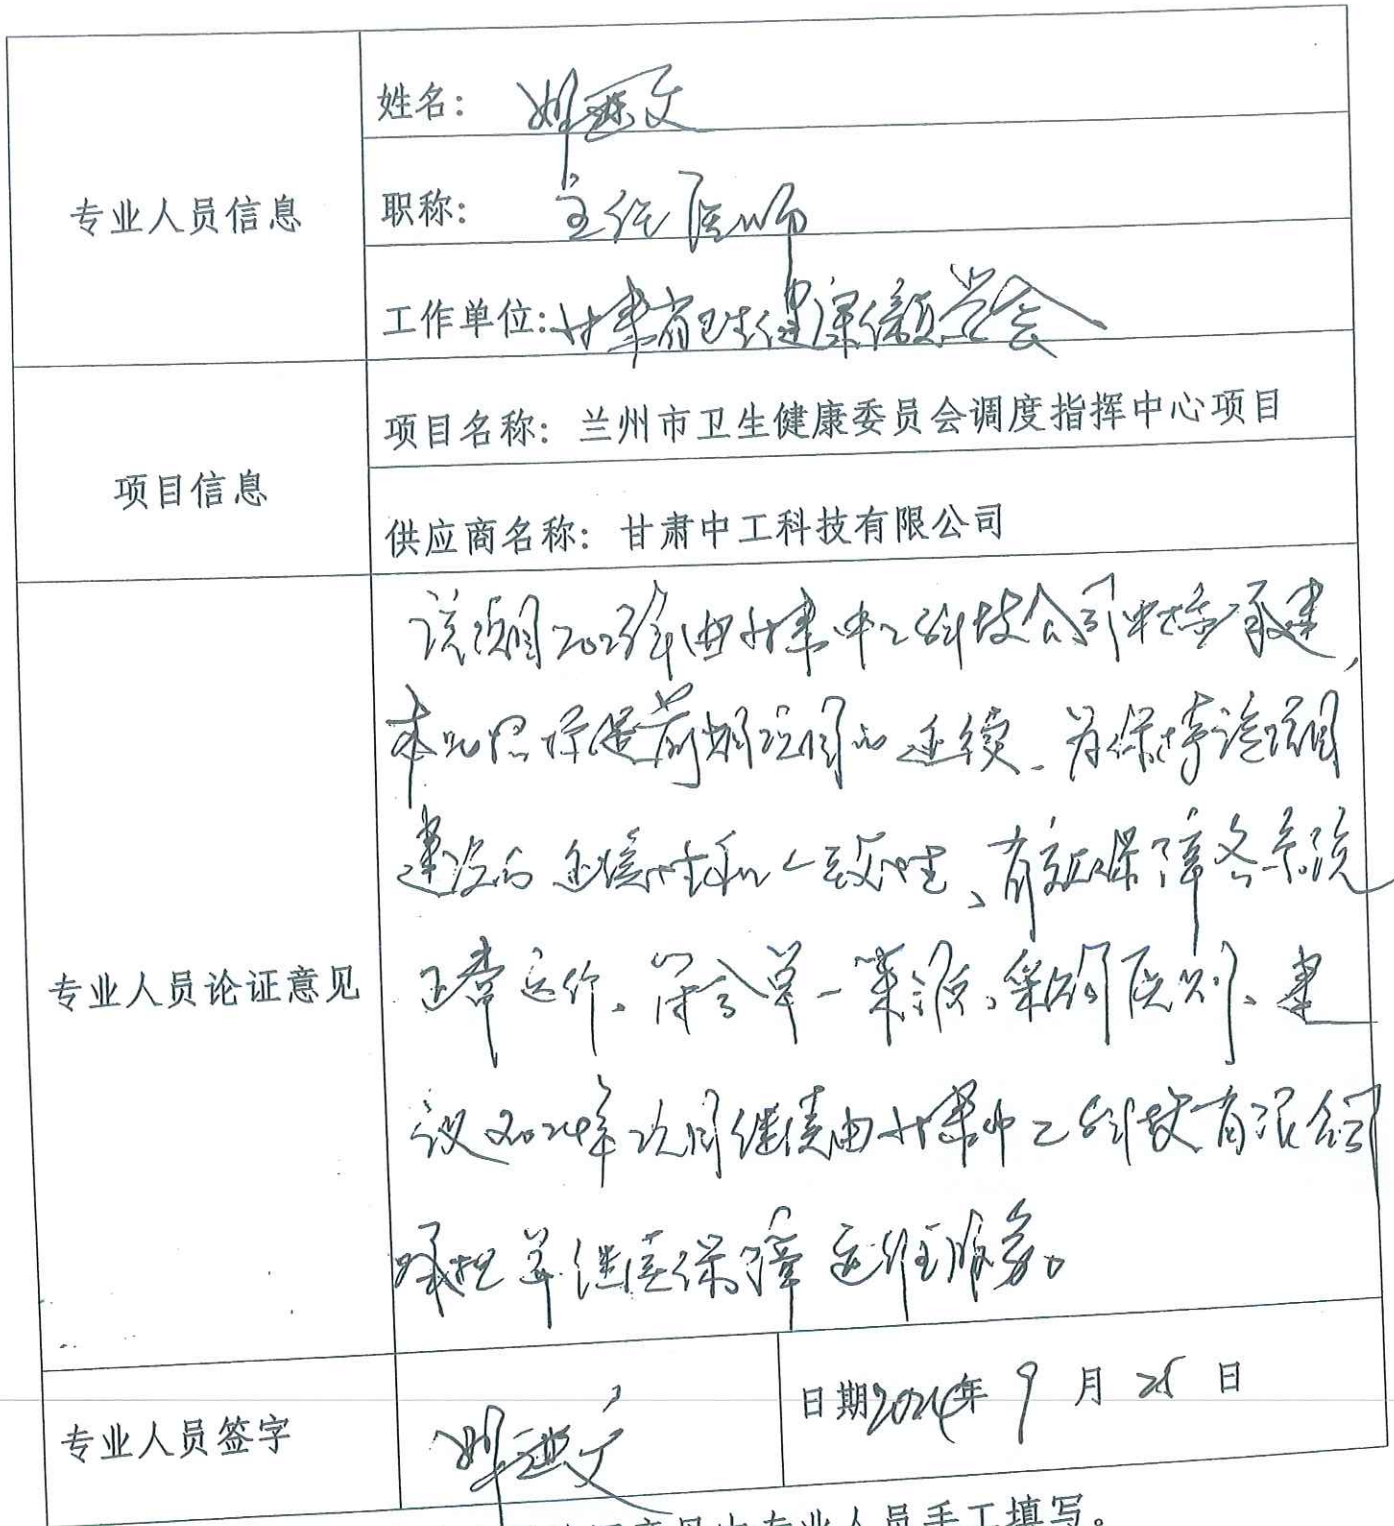 专业人员信息
姓名：
职称： 主任医师
工作单位：甘肃省卫生健康信息学会
项目信息
项目名称：兰州市卫生健康委员会调度指挥中心项目
供应商名称：甘肃中工科技有限公司
专业人员论证意见
该项目2023年由甘肃中工科技公司中标承建，
前期项目的延续、为保持该项目
建设的连续性和一致性、有效保障各系统
正常运作、符合单一来源采购原则、建
议2024年项目继续由甘肃中工科技有限公司
承担并继续保障运维服务。
专业人员签字
日期2024年 9 月 25 日
专业人员手工填写。